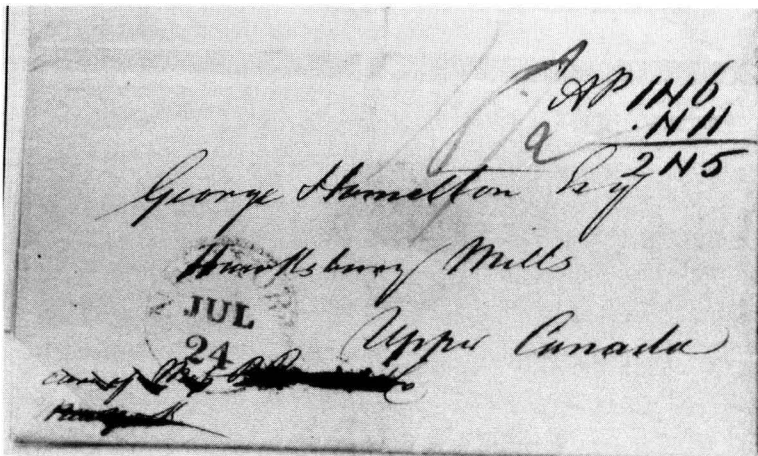 AP 1N6
.N11
2N5
George Hamelton Esq
Hawksbury Mills
JUL
24
Upper Canada
care of